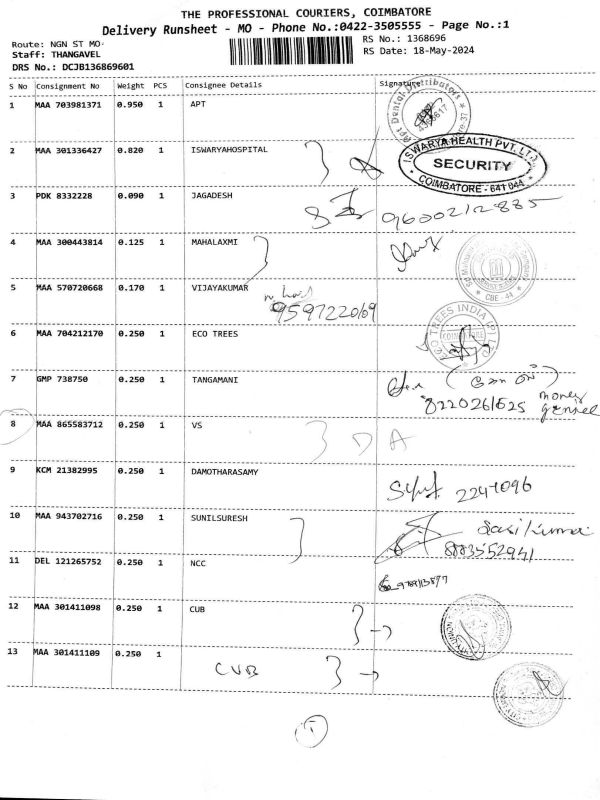 THE PROFESSIONAL COURIERS, COIMBATORE
Delivery Runsheet - MO - Phone No.:0422-3505555 - Page No.:1
Route: NGN ST MO- RS No.: 1368696
Staff: THANGAVEL RS Date: 18-May-2024
DRS No.: DCJB136869601
S No Consignment No Weight PCS Consignee Details Signature
1 MAA 703981371 0.950 1 APT
2 MAA 301336427 0.820 1 ISWARYAHOSPITAL
ISWARYA HEALTH PVT. LTD.
SECURITY
COIMBATORE - 641 044
3 PDK 8332228 0.090 1 JAGADESH
4 MAA 300443814 0.125 1 MAHALAXMI
CBE - 44
5 MAA 570720668 0.170 1 VIJAYAKUMAR
9597220109
6 MAA 704212170 0.250 1 ECO TREES
ECO TREES INDIA (P) LTD
7 GMP 738750 0.250 1 TANGAMANI
8220261525 money
8 MAA 865583712 0.250 1 VS D A
9 KCM 21382995 0.250 1 DAMOTHARASAMY
2247096
10 MAA 943702716 0.250 1 SUNILSURESH
Sasikumar
883552941
11 DEL 121265752 0.250 1 NCC
12 MAA 301411098 0.250 1 CUB
13 MAA 301411109 0.250 1
CUB